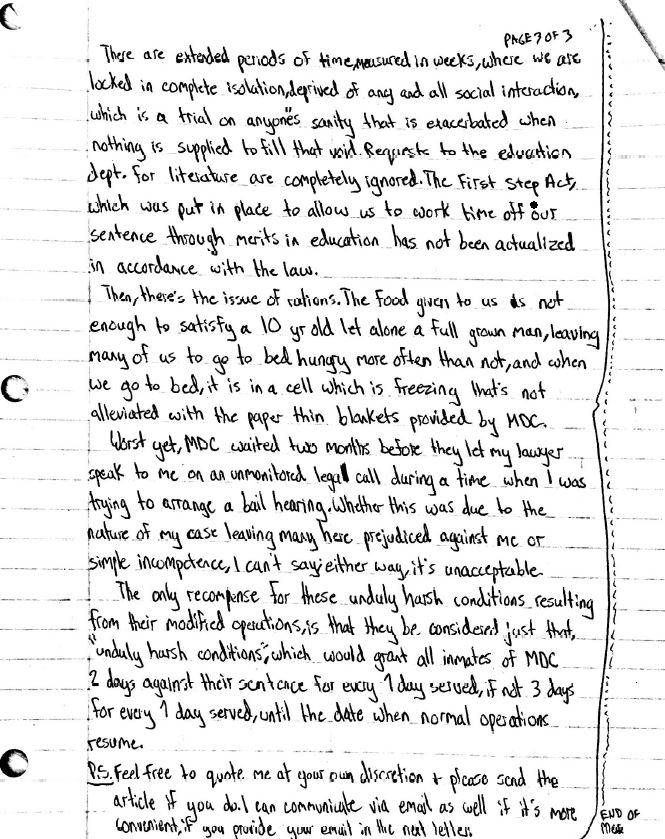 PAGE 3 OF 3
There are extended periods of time, measured in weeks, where we are
locked in complete isolation, deprived of any and all social interaction,
which is a trial on anyone's sanity that is exacerbated when
nothing is supplied to fill that void. Requests to the education
dept. for literature are completely ignored. The First Step Act,
which was put in place to allow us to work time off our
sentence through merits in education has not been actualized
in accordance with the law.
Then, there's the issue of rations. The food given to us is not
enough to satisfy a 10 yr old let alone a full grown man, leaving
many of us to go to bed hungry more often than not, and when
we go to bed, it is in a cell which is freezing that's not
alleviated with the paper thin blankets provided by MDC.
Worst yet, MDC waited two months before they let my lawyer
speak to me on an unmonitored legal call during a time when I was
trying to arrange a bail hearing. Whether this was due to the
nature of my case leaving many here prejudiced against me or
simple incompetence, I can't say; either way, it's unacceptable.
The only recompense for these unduly harsh conditions resulting
from their modified operations, is that they be considered just that,
"unduly harsh conditions", which would grant all inmates of MDC
2 days against their sentence for every 1 day served, if not 3 days
for every 1 day served, until the date when normal operations
resume.
P.S. Feel free to quote me at your own discretion + please send the
article if you do. I can communicate via email as well if it's more
convenient, if you provide your email in the next letter.
END OF